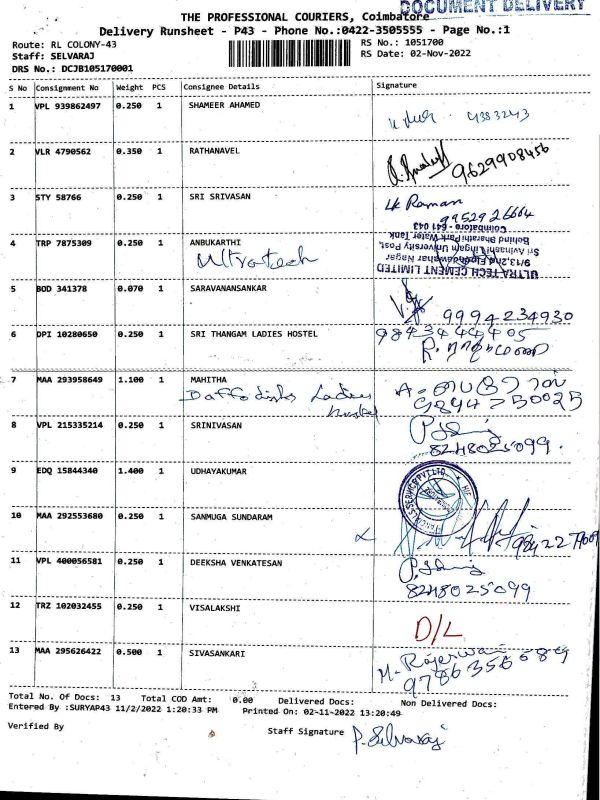 DOCUMENT DELIVERY
THE PROFESSIONAL COURIERS, Coimbatore
Delivery Runsheet - P43 - Phone No.:0422-3505555 - Page No.:1
Route: RL COLONY-43
RS No.: 1051700
Staff: SELVARAJ
RS Date: 02-Nov-2022
DRS No.: DCJB105170001
S No Consignment No Weight PCS Consignee Details Signature
1 VPL 939862497 0.250 1 SHAMEER AHAMED
2 VLR 4790562 0.350 1 RATHANAVEL 9629908456
3 STY 58766 0.250 1 SRI SRIVASAN LK Raman
9952926664
4 TRP 7875309 0.250 1 ANBUKARTHI
Ultratech
ULTRA TECH CEMENT LIMITED
Sri Avinashi Lingam University Post,
Behind Bharathi Park Water Tank
Coimbatore - 641 043
5 BOD 341378 0.070 1 SARAVANANSANKAR 9994234930
6 DPI 10280650 0.250 1 SRI THANGAM LADIES HOSTEL 98434 44405
7 MAA 293958649 1.100 1 MAHITHA
Ladies
Hostel
8 VPL 215335214 0.250 1 SRINIVASAN
8248025099.
9 EDQ 15844340 1.400 1 UDHAYAKUMAR
10 MAA 292553680 0.250 1 SANMUGA SUNDARAM
11 VPL 400056581 0.250 1 DEEKSHA VENKATESAN
8248025099
12 TRZ 102032455 0.250 1 VISALAKSHI D/L
13 MAA 295626422 0.500 1 SIVASANKARI
Total No. Of Docs: 13 Total COD Amt: 0.00 Delivered Docs: Non Delivered Docs:
Entered By :SURYAP43 11/2/2022 1:20:33 PM Printed On: 02-11-2022 13:20:49
Verified By Staff Signature P. Selvaraj